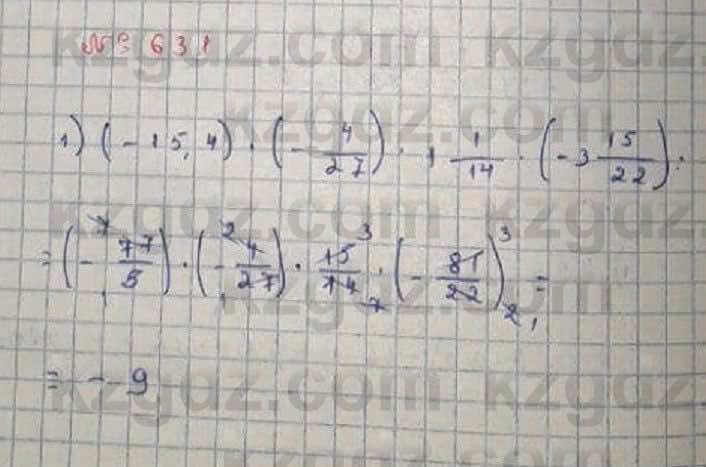 № 631
1) (-15,4) · (- 4/27) · 1 1/14 · (-3 15/22) :
= (- 77/5) · (- 4/27) · 15/14 · (- 81/22) =
= - 9
kzgdz.com kzgdz.com
kzgdz.com
kzgdz.com kzgdz.com
kzgdz.com
kzgdz.com kzgdz.com